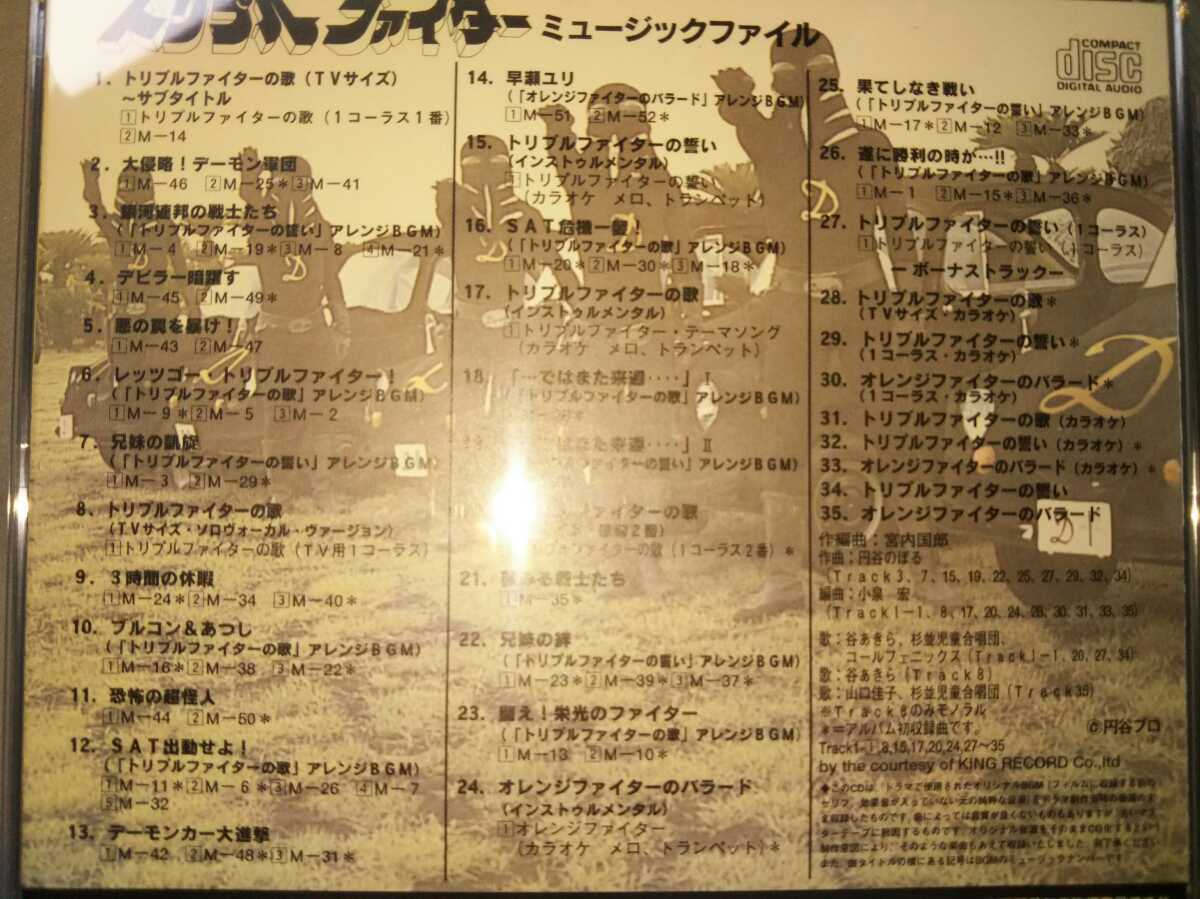 トリプルファイター ミュージックファイル
COMPACT
disc
DIGITAL AUDIO
1. トリプルファイターの歌(TVサイズ)
〜サブタイトル
1トリプルファイターの歌(1コーラス1番)
2M—14
2. 大侵略!デーモン軍団
1M—46 2M—25*3M—41
3. 銀河連邦の戦士たち
(「トリプルファイターの誓い」アレンジBGM)
1M—4 2M—19*3M—8 4M—21*
4. デビラー暗躍す
1M—45 2M—49*
5. 悪の罠を暴け!
1M—43 2M—47
6. レッツゴー!トリプルファイター!
(「トリプルファイターの歌」アレンジBGM)
1M—9*2M—5 3M—2
7. 兄妹の凱旋
(「トリプルファイターの誓い」アレンジBGM)
1M—3 2M—29*
8. トリプルファイターの歌
(TVサイズ・ソロヴォーカル・ヴァージョン)
1トリプルファイターの歌(TV用1コーラス)
9. 3時間の休暇
1M—24*2M—34 3M—40*
10. ブルコン&あつし
(「トリプルファイターの歌」アレンジBGM)
1M—16*2M—38 3M—22*
11. 恐怖の超怪人
1M—44 2M—50*
12. SAT出動せよ!
(「トリプルファイターの歌」アレンジBGM)
1M—11*2M—6*3M—26 4M—7
5M—32
13. デーモンカー大進撃
1M—42 2M—48*3M—31*
14. 早瀬ユリ
(「オレンジファイターのバラード」アレンジBGM)
1M—51 2M—52*
15. トリプルファイターの誓い
(インストゥルメンタル)
1トリプルファイターの誓い
(カラオケ メロ、トランペット)
16. SAT危機一髪!
(「トリプルファイターの歌」アレンジBGM)
1M—20*2M—30*3M—18*
17. トリプルファイターの歌
(インストゥルメンタル)
1トリプルファイター・テーマソング
(カラオケ メロ、トランペット)
18. 「…ではまた来週‥‥」I
(「トリプルファイターの歌」アレンジBGM)
はまた来週‥‥」II
ファイターの誓い」アレンジBGM)
ファイターの歌
2番)
ファイターの歌(1コーラス2番)*
21. 戦士たち
M—35*
22. 兄妹の絆
(「トリプルファイターの誓い」アレンジBGM)
1M—23*2M—39*3M—37*
23. 闘え!栄光のファイター
(「トリプルファイターの歌」アレンジBGM)
1M—13 2M—10*
24. オレンジファイターのバラード
(インストゥルメンタル)
1オレンジファイター
(カラオケ メロ、トランペット)*
25. 果てしなき戦い
(「トリプルファイターの誓い」アレンジBGM)
1M—17*2M—12 3M—33*
26. 遂に勝利の時が…!!
(「トリプルファイターの歌」アレンジBGM)
1M—1 2M—15*3M—36*
27. トリプルファイターの誓い(1コーラス)
1トリプルファイターの誓い(1コーラス)
—ボーナストラック—
28. トリプルファイターの歌*
(TVサイズ・カラオケ)
29. トリプルファイターの誓い*
(1コーラス・カラオケ)
30. オレンジファイターのバラード*
(1コーラス・カラオケ)
31. トリプルファイターの歌(カラオケ)
32. トリプルファイターの誓い(カラオケ)*
33. オレンジファイターのバラード(カラオケ)*
34. トリプルファイターの誓い
35. オレンジファイターのバラード
作編曲:宮内国郎
作曲:円谷のぼる
(Track3、7、15、19、22、25、27、29、32、34)
編曲:小泉 宏
(Track1-1、8、17、20、24、28、30、31、33、35)
歌:谷あきら、杉並児童合唱団、
コールフェニックス(Track1-1、20、27、34)
歌:谷あきら(Track8)
歌:山口佳子、杉並児童合唱団(Track35)
※Track8のみモノラル
*=アルバム初収録曲です。
©円谷プロ
Track1-1,8,15,17,20,24,27〜35
by the courtesy of KING RECORD Co.,ltd
D
D
D
D1